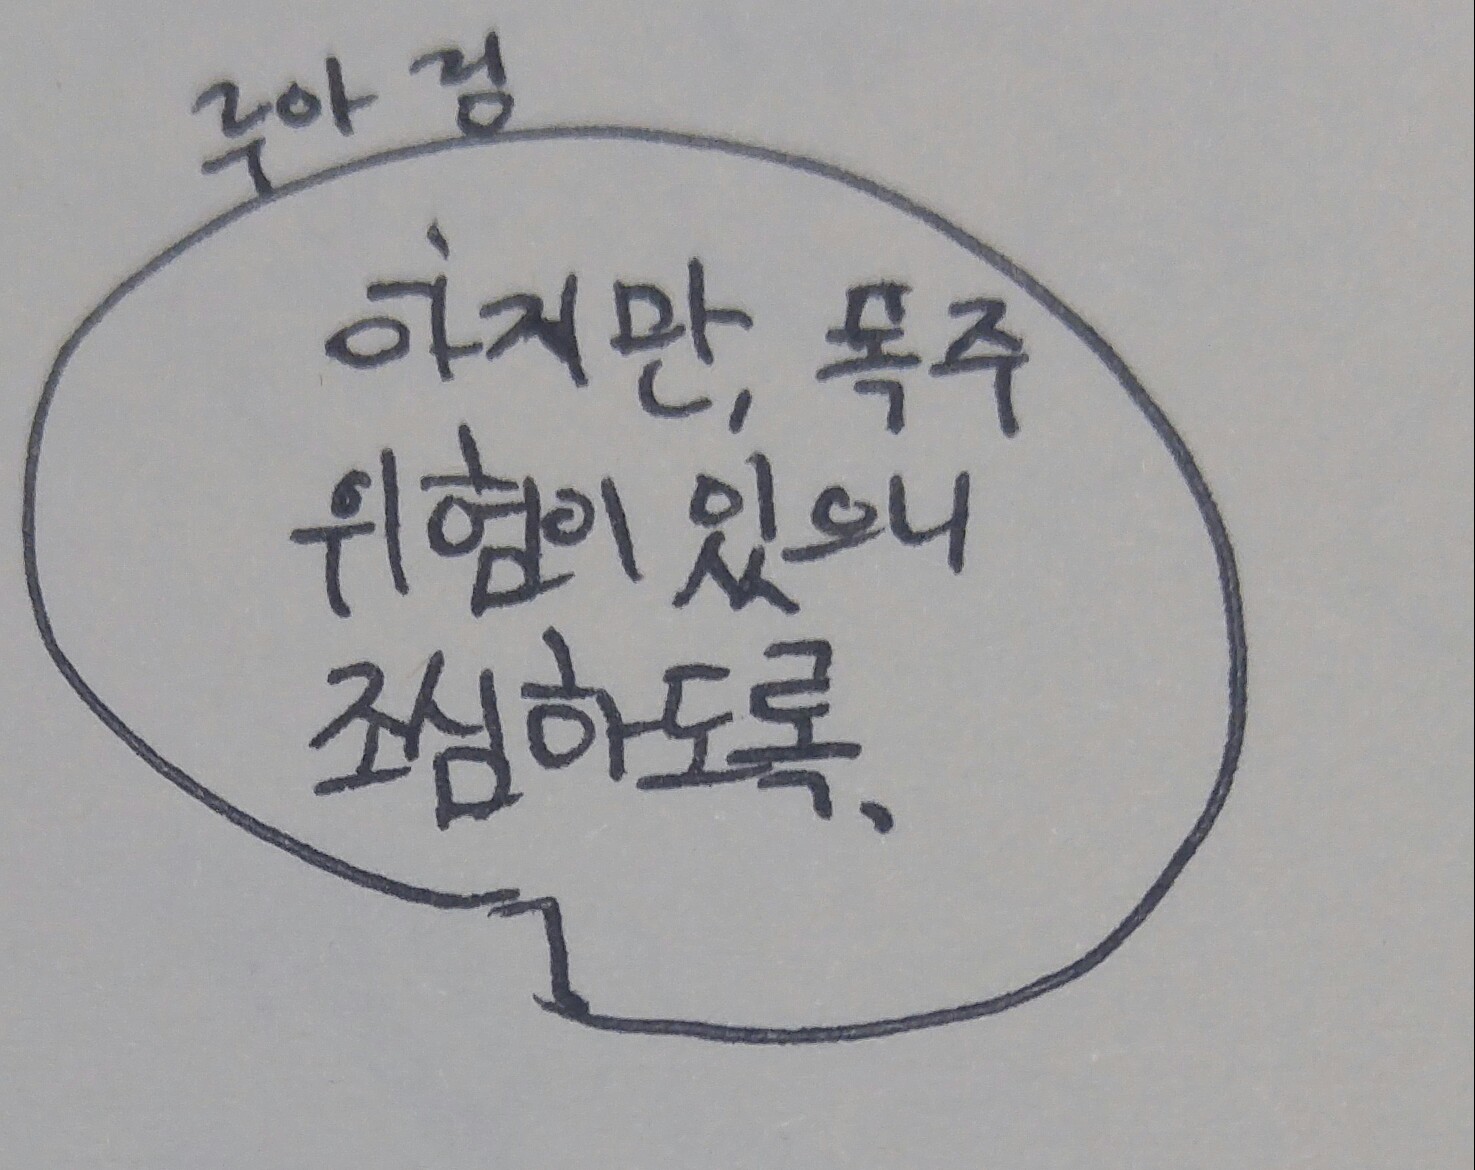 루아 정
하지만, 폭주
위험이 있으니
조심하도록.